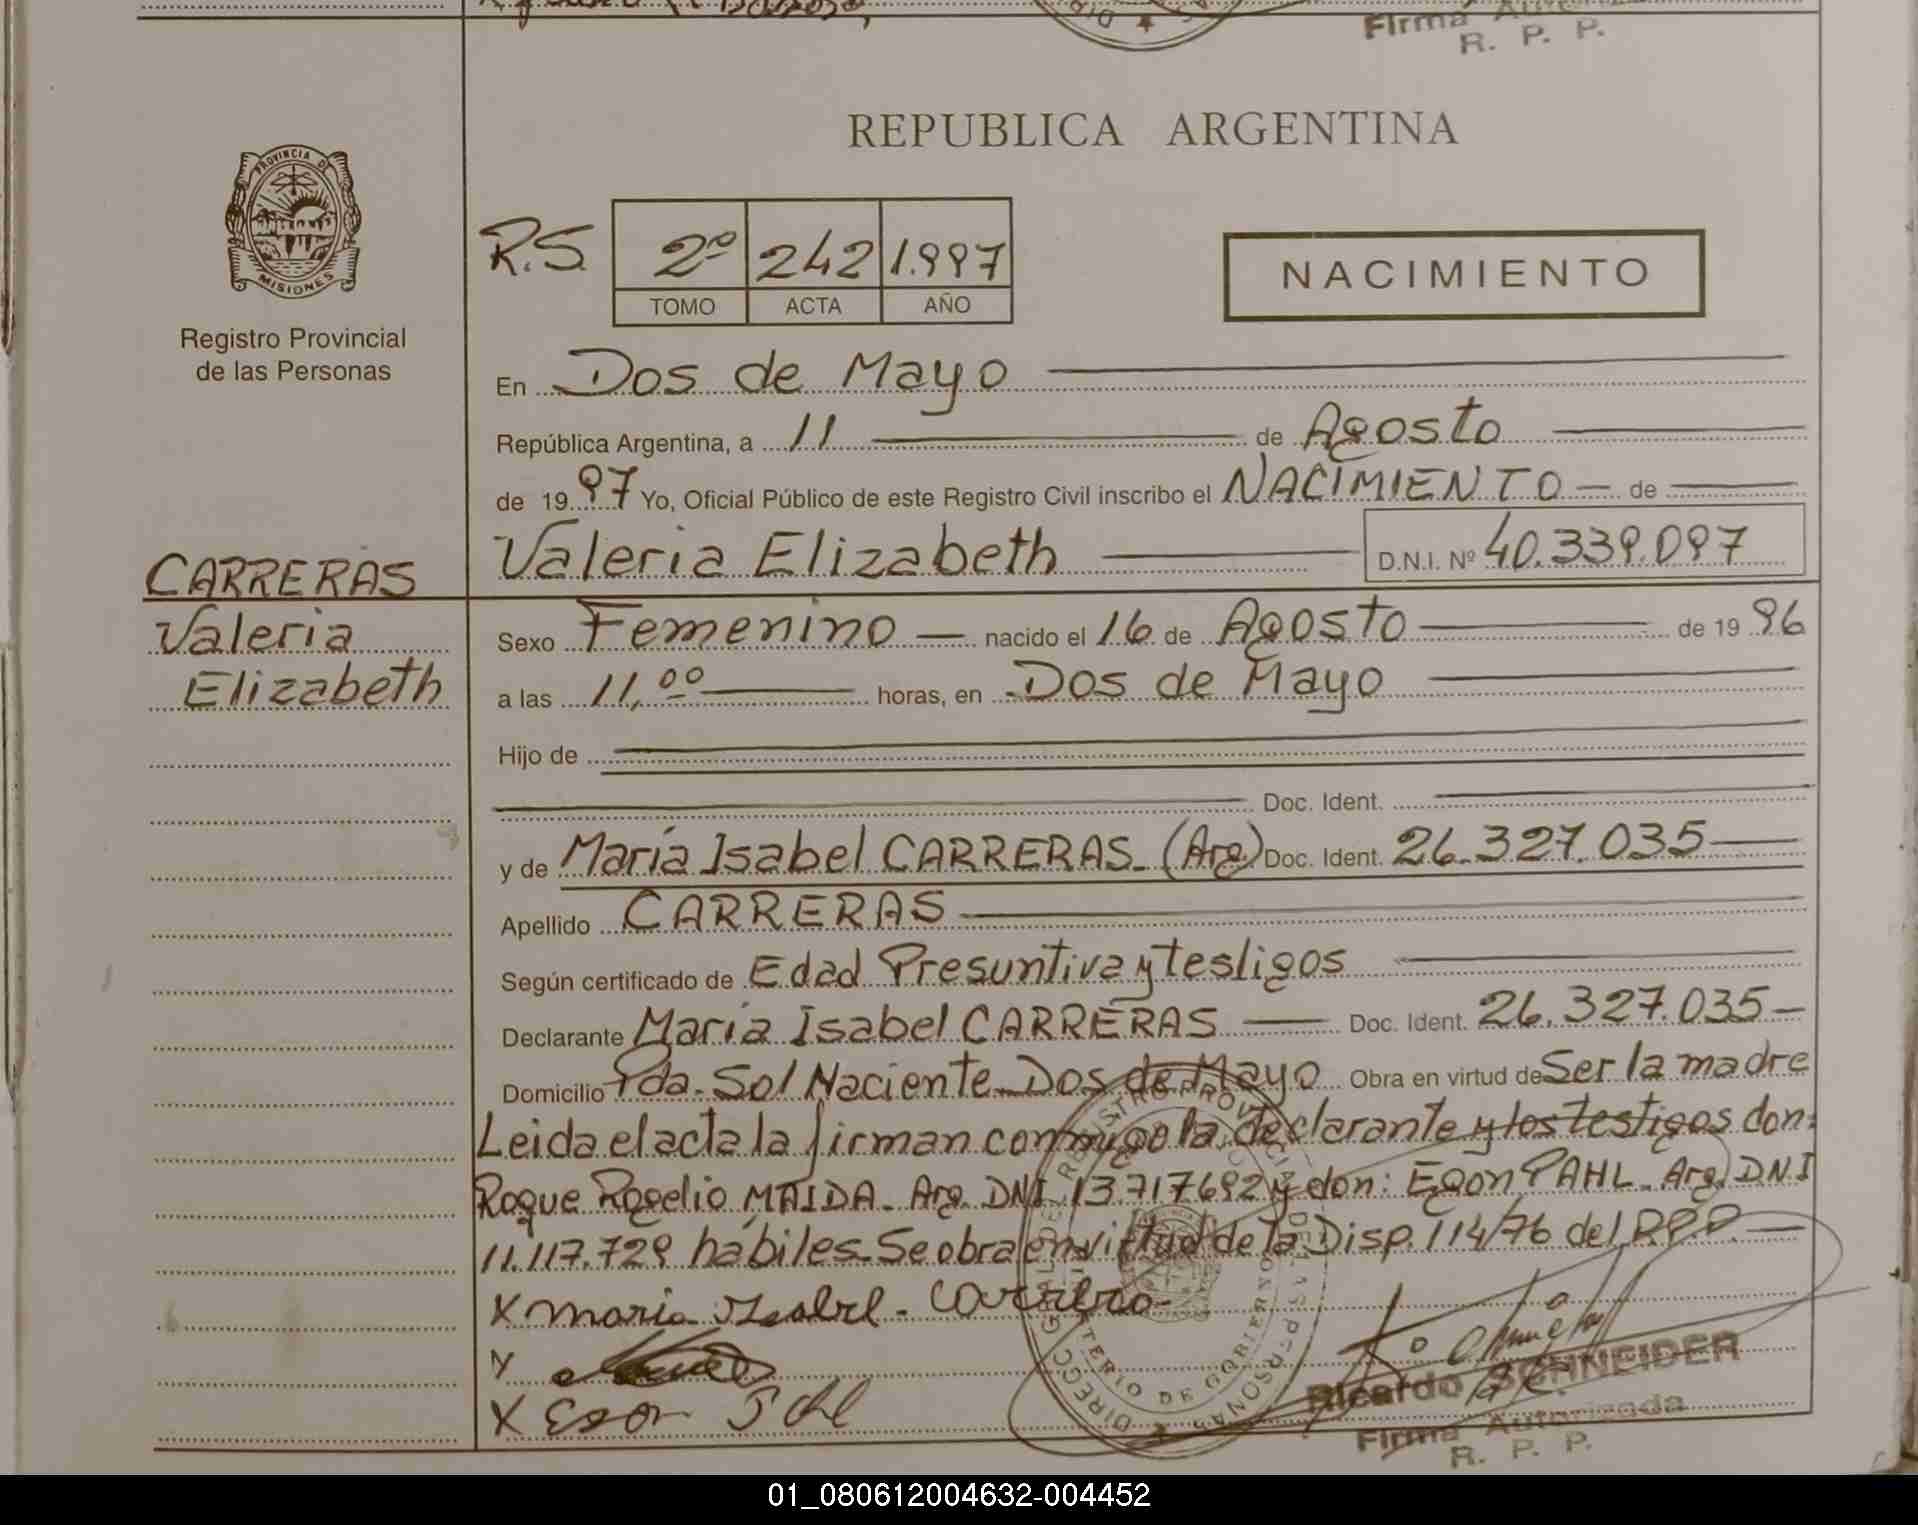 Firma
R. P. P.
REPUBLICA ARGENTINA
PROVINCIA DE
MISIONES
Registro Provincial
de las Personas
R.S. 2º 242 1.997
TOMO ACTA AÑO
NACIMIENTO
En Dos de Mayo
República Argentina, a 11 de Agosto
de 19 97 Yo, Oficial Público de este Registro Civil inscribo el NACIMIENTO de
CARRERAS
Valeria
Elizabeth
Valeria Elizabeth D.N.I. Nº 40.339.097
Sexo Femenino nacido el 16 de Agosto de 19 96
a las 11,00 horas, en Dos de Mayo
Hijo de
Doc. Ident.
y de María Isabel CARRERAS (Arg) Doc. Ident. 26.327.035
Apellido CARRERAS
Según certificado de Edad Presuntiva y testigos
Declarante María Isabel CARRERAS Doc. Ident. 26.327.035
Domicilio Pda. Sol Naciente Dos de Mayo Obra en virtud de Ser la madre
Leida el acta la firman conmigo la declarante y los testigos don:
Roque Rogelio MAIDA. Arg. DNI 13.717692 y don: Egon PAHL. Arg. DNI
11.117.729 hábiles. Se obra en virtud de la Disp. 114/76 del R.P.P.
X maria Isabel
Ricardo SCHNEIDER
Firma Autorizada
R. P. P.
01_080612004632-004452